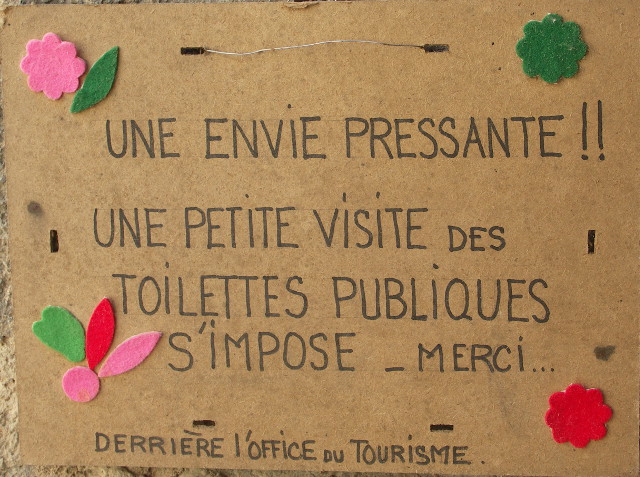 UNE ENVIE PRESSANTE !!
UNE PETITE VISITE DES
TOILETTES PUBLIQUES
S'IMPOSE _ MERCI...
DERRIÈRE l'OFFICE DU TOURISME.